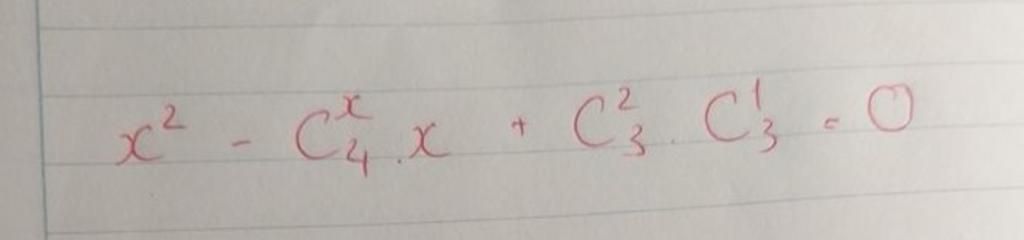 x² - C₄ˣ.x + C₃². C₃¹ = 0